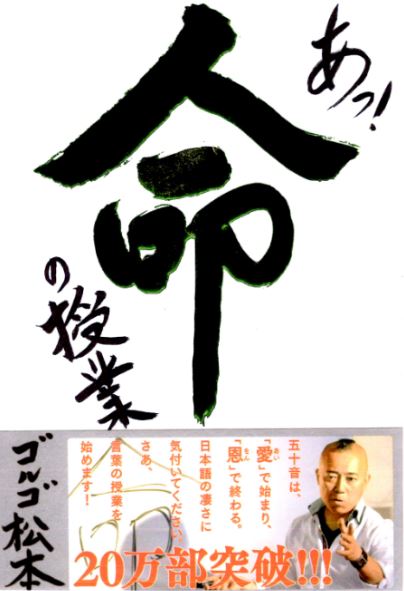 あっ!
命
の授業
ゴルゴ松本
五十音は、
「愛」で始まり、
あい
「恩」で終わる。
おん
日本語の凄さに
気付いてください。
さあ、
言葉の授業を
始めます!
20万部突破!!!